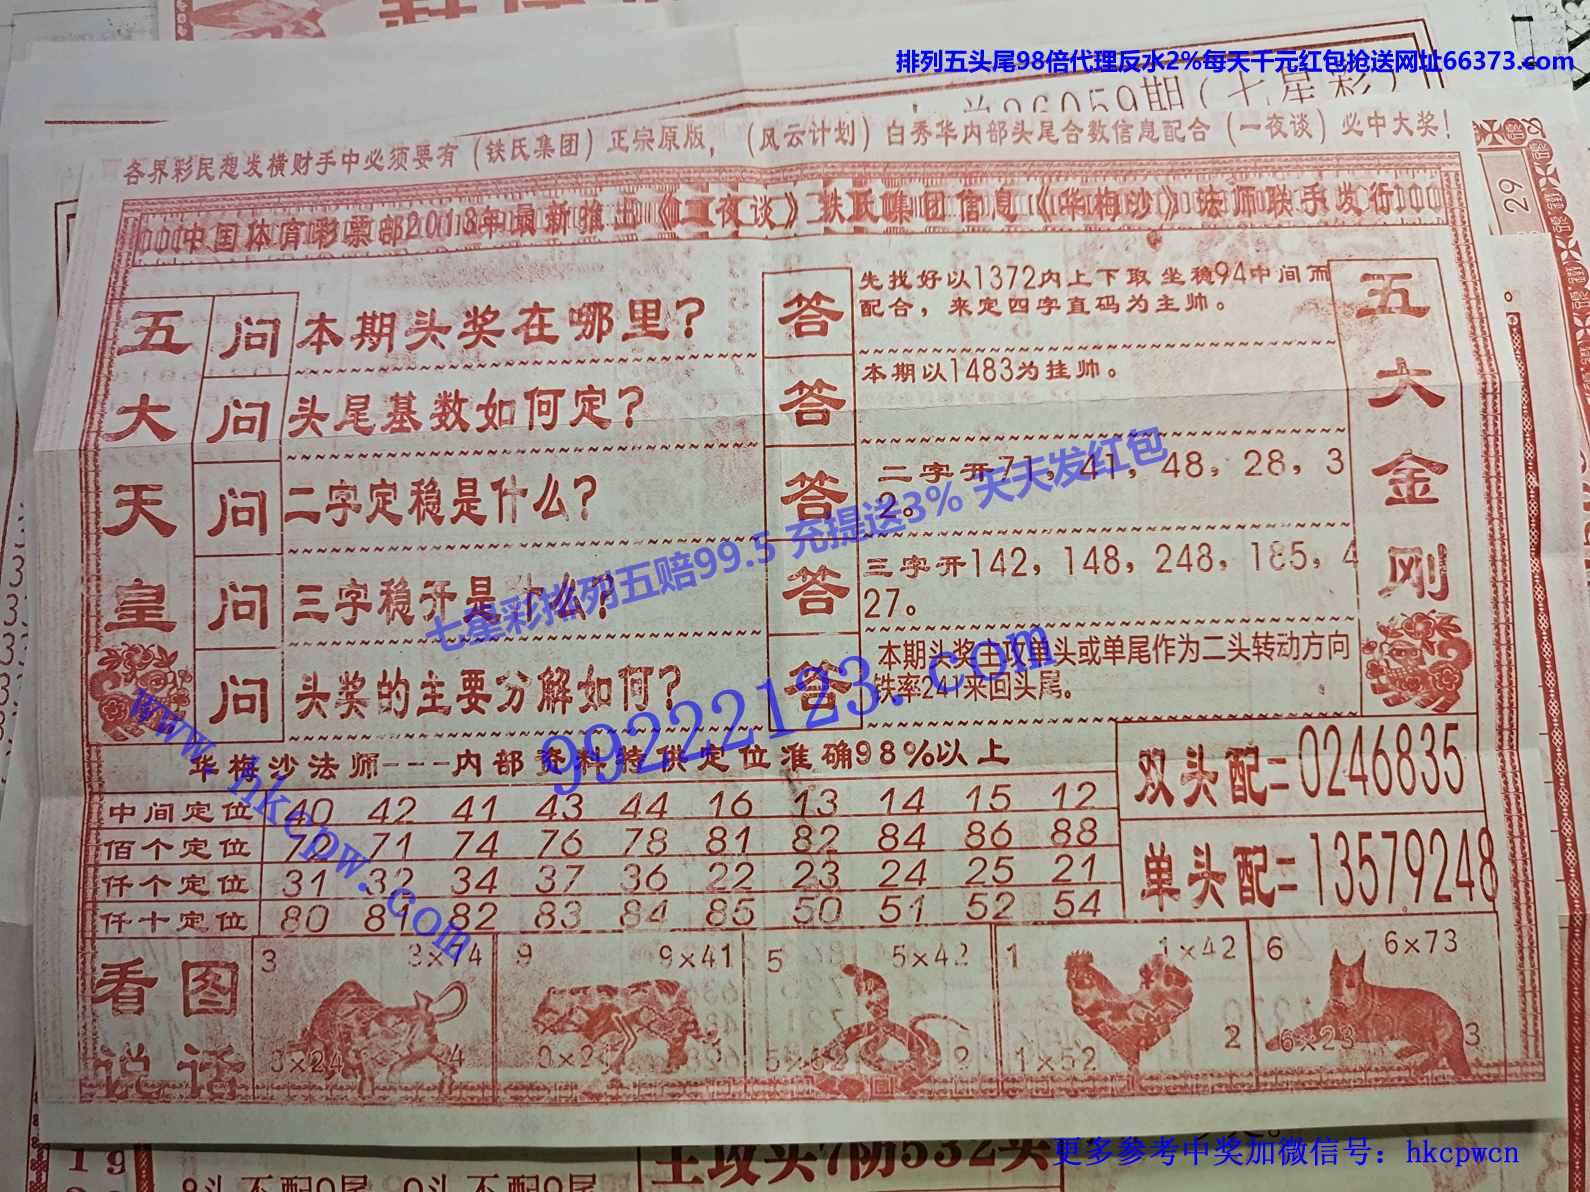 排列五头尾98倍代理反水2%每天千元红包抢送网址66373.com
26059期(七星彩)
各界彩民想发横财手中必须要有(铁氏集团)正宗原版,(风云计划)白秀华内部头尾合数信息配合(一夜谈)必中大奖!
中国体育彩票部2013年最新推出《一夜谈》铁氏集团信息《华梅沙》法师联手发行
29
五大天皇
问 本期头奖在哪里?
答 先找好以1372内上下取坐稳94中间而
配合,来定四字直码为主帅。
问 头尾基数如何定?
答 本期以1483为挂帅。
问 二字定稳是什么?
答 二字开71,41,48,28,3
2。
问 三字稳开是什么?
答 三字开142,148,248,185,4
27。
问 头奖的主要分解如何?
答 本期头奖主攻单头或单尾作为二头转动方向
铁率241来回头尾。
五大金刚
七星彩排列五赔99.5 充提送3% 天天发红包
99222123.com
www.hkcpw.com
华梅沙法师---内部资料特供定位准确98%以上
中间定位 40 42 41 43 44 16 13 14 15 12
佰个定位 72 71 74 76 78 81 82 84 86 88
仟个定位 31 32 34 37 36 22 23 24 25 21
仟十定位 80 81 82 83 84 85 50 51 52 54
双头配=0246835
单头配=13579248
看图说话
3 3×74 3×24 4
9 9×41
5 5×42 5×62 2
1 1×42 1×52 2
6 6×73 6×23 3
主攻头7防532头
19
8头不配0尾 0头不配0尾
更多参考中奖加微信号:hkcpwcn